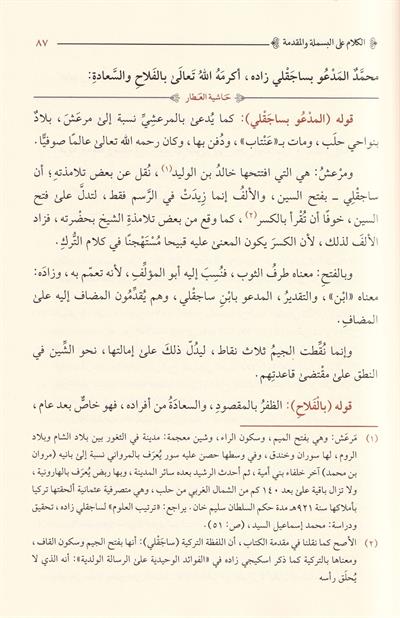 الكلام على البسملة والمقدمة ٨٧
محمَّدٌ المَدْعُو بساجَقْلي زاده، أكرمَهُ اللهُ تَعالَىٰ بالفَلاحِ والسَّعادةِ:
حَاشِية العَطار
قوله (المدْعُو بساجَقْلي): كما يُدعىٰ بالمرعشِيِّ نسبة إلىٰ مرعَشَ، بلادٌ
بنواحي حلَب، ومات بـ«عَنْتاب»، ودُفن بها، وكان رحمه الله تعالىٰ عالمًا صوفيًّا.
ومرْعشُ: هي التي افتتحها خالدُ بن الوليد(١)، نُقل عن بعض تلامذتِه؛ أن
ساجقْلِي ـ بفتح السين، والألفُ إنما زِيدَتْ في الرَّسم فقط، لتدلَّ علىٰ فتح
السين، خوفًا أن تُقْرأ بالكسر(٢)، كما وقع من بعض تلامذةِ الشيخِ بحضْرته، فزاد
الألفَ لذلك، لأن الكسرَ يكون المعنىٰ عليه قبيحا مُسْتَهْجنًا في كلام التُّركِ.
وبالفتحِ: معناه طرفُ الثوب، فنُسِبَ إليه أبو المؤلِّفِ، لأنه تعمّم به، وزادَه:
معناه «ابْن»، والتقديرُ، المدعو بابْنِ ساجقلي، وهم يُقدِّمُون المضاف إليه علىٰ
المضافِ.
وإنما نُقِّطت الجيمُ ثلاث نقاط، ليدُلّ ذلكَ علىٰ إمالتها، نحو الشِّين في
النطق علىٰ مقْتضىٰ قاعدتِهم.
قوله (بالْفَلاحِ): الظفرُ بالمقصودِ، والسعادةُ من أفراده، فهو خاصٌّ بعد عام،
(١) مَرعَش: وهي بفتح الميم، وسكون الراء، وشين معجمة: مدينة في الثغور بين بلاد الشام وبلاد
الروم، لها سوران وخندق، وفي وسطها حصن عليه سور يُعرَف بالمرواني نسبة إلى بانيه (مروان
بن محمد) آخر خلفاء بني أمية، ثم أحدث الرشيد بعده سائر المدينة، وبها ربض يُعرَف بالهارونية،
ولا تزال باقية علىٰ بعد ١٤٠كم من الشمال الغربي من حلب، وهي متصرفية عثمانية ألحقتها تركيا
بأملاكها سنة ٩٢١هـ مدة حكم السلطان سليم خان. يراجع: «ترتيب العلوم» لساجقلي زاده، تحقيق
ودراسة: محمد إسماعيل السيد، (ص: ٥١).
(٢) الأصح كما نقلنا في مقدمة الكتاب، أن اللفظة التركية (ساجَقْلي): أنها بفتح الجيم وسكون القاف،
ومعناها بالتركية كما ذكر اسكيجي زاده في «الفوائد الوحيدية على الرسالة الولدية»: أنه الذي لا
يُحلَق رأسه